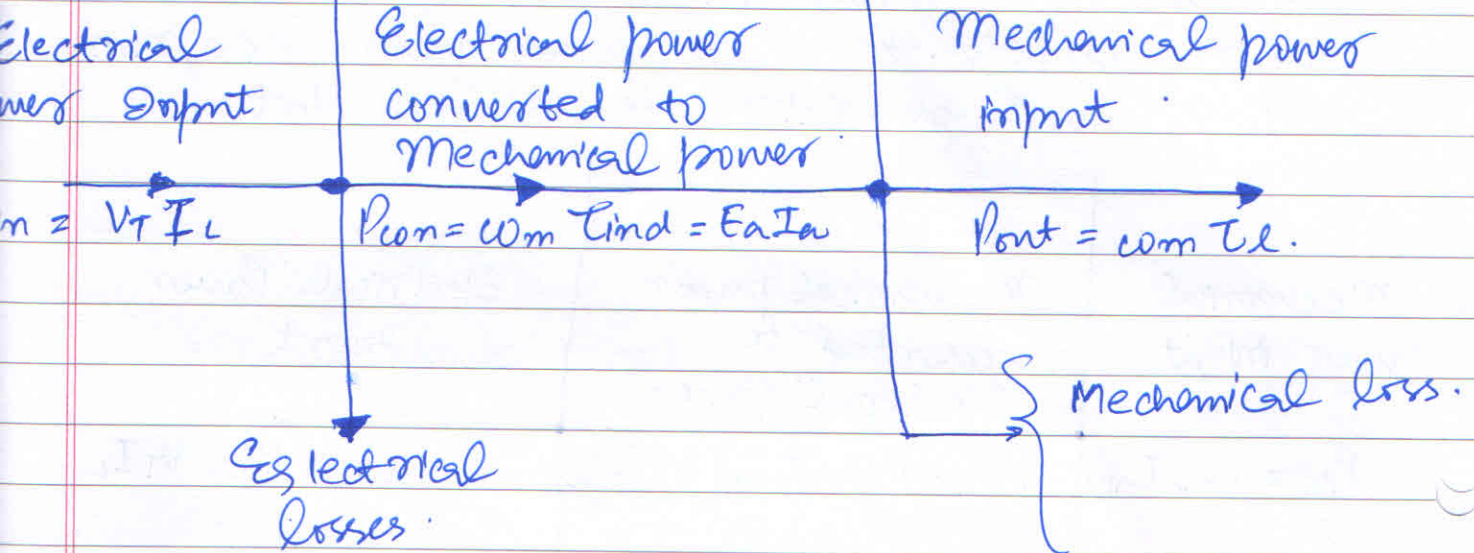 Electrical
wer Input
Electrical power
converted to
Mechanical power
Mechanical power
input
n = VT IL
Pcon = ωm τind = EaIa
Pout = ωm τl.
Electrical
losses.
Mechanical loss.